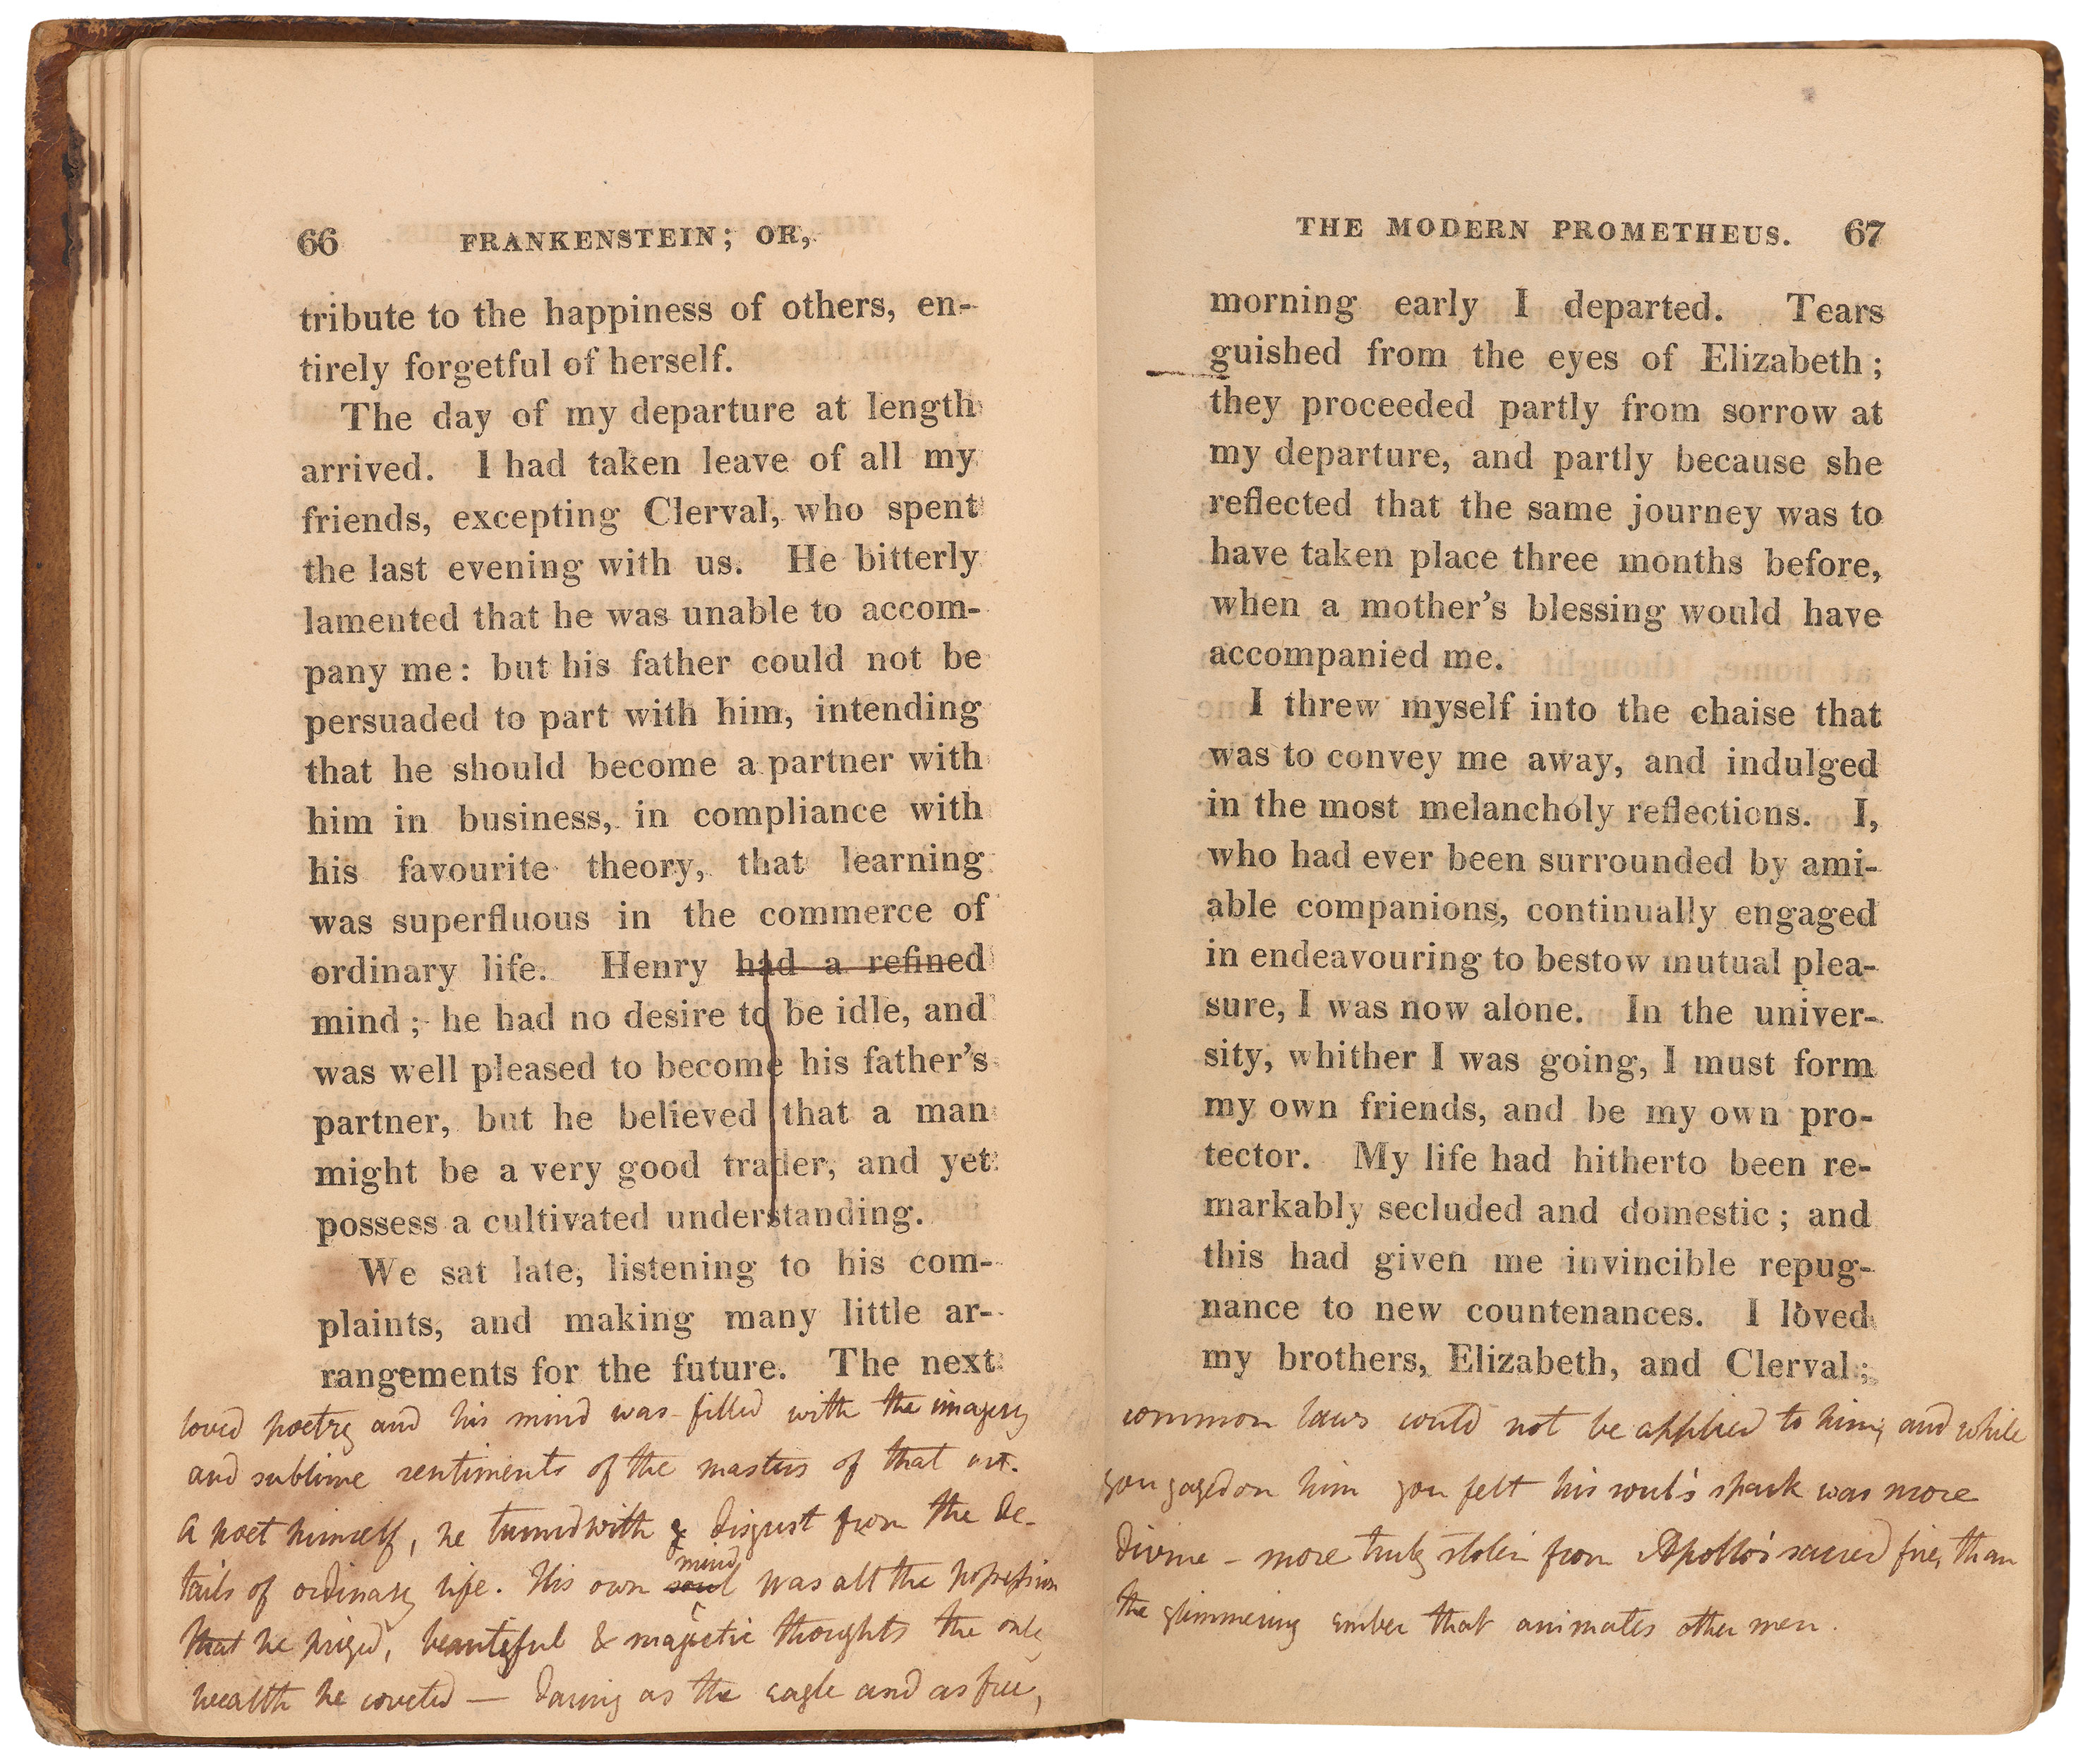 66 FRANKENSTEIN; OR,
tribute to the happiness of others, en-
tirely forgetful of herself.
The day of my departure at length
arrived. I had taken leave of all my
friends, excepting Clerval, who spent
the last evening with us. He bitterly
lamented that he was unable to accom-
pany me: but his father could not be
persuaded to part with him, intending
that he should become a partner with
him in business, in compliance with
his favourite theory, that learning
was superfluous in the commerce of
ordinary life. Henry had a refined
mind; he had no desire to be idle, and
was well pleased to become his father's
partner, but he believed that a man
might be a very good trader, and yet
possess a cultivated understanding.
We sat late, listening to his com-
plaints, and making many little ar-
rangements for the future. The next
loved poetry and his mind was filled with the imagery
and sublime sentiments of the masters of that art.
A poet himself, he turned with disgust from the de-
mind
tails of ordinary life. His own soul was all the possession
that he prized, beautiful & majestic thoughts the only
wealth he coveted — daring as the eagle and as free,
THE MODERN PROMETHEUS. 67
morning early I departed. Tears
guished from the eyes of Elizabeth;
they proceeded partly from sorrow at
my departure, and partly because she
reflected that the same journey was to
have taken place three months before,
when a mother's blessing would have
accompanied me.
I threw myself into the chaise that
was to convey me away, and indulged
in the most melancholy reflections. I,
who had ever been surrounded by ami-
able companions, continually engaged
in endeavouring to bestow mutual plea-
sure, I was now alone. In the univer-
sity, whither I was going, I must form
my own friends, and be my own pro-
tector. My life had hitherto been re-
markably secluded and domestic; and
this had given me invincible repug-
nance to new countenances. I loved
my brothers, Elizabeth, and Clerval;
common laws could not be applied to him; and while
you gazed on him you felt his soul's spark was more
divine – more truly stolen from Apollo's sacred fire, than
the glimmering ember that animates other men.